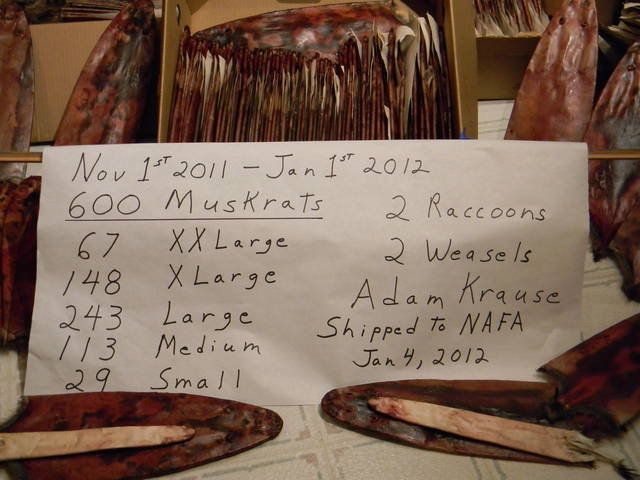 Nov 1st 2011 - Jan 1st 2012
600 Muskrats
67 XXLarge
148 XLarge
243 Large
113 Medium
29 Small
2 Raccoons
2 Weasels
Adam Krause
Shipped to NAFA
Jan 4, 2012